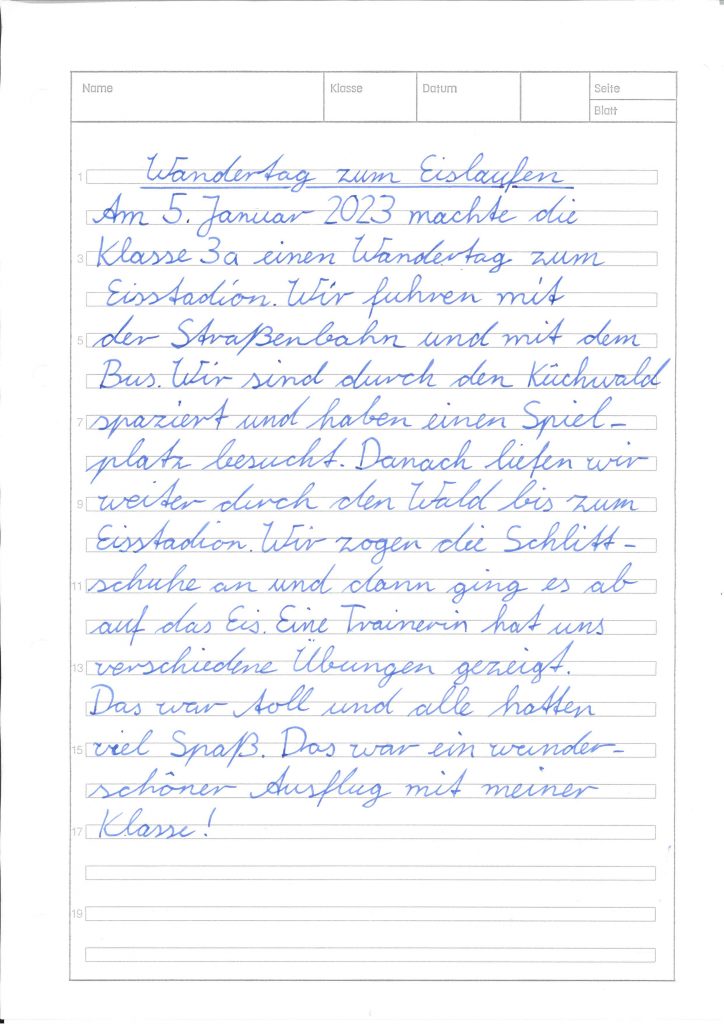 Name Klasse Datum Seite
Blatt
1 Wandertag zum Eislaufen
Am 5. Januar 2023 machte die
3 Klasse 3a einen Wandertag zum
Eisstadion. Wir fuhren mit
5 der Straßenbahn und mit dem
Bus. Wir sind durch den Küchwald
7 spaziert und haben einen Spiel-
platz besucht. Danach liefen wir
9 weiter durch den Wald bis zum
Eisstadion. Wir zogen die Schlitt-
11 schuhe an und dann ging es ab
auf das Eis. Eine Trainerin hat uns
13 verschiedene Übungen gezeigt.
Das war toll und alle hatten
15 viel Spaß. Das war ein wunder-
schöner Ausflug mit meiner
17 Klasse!
19